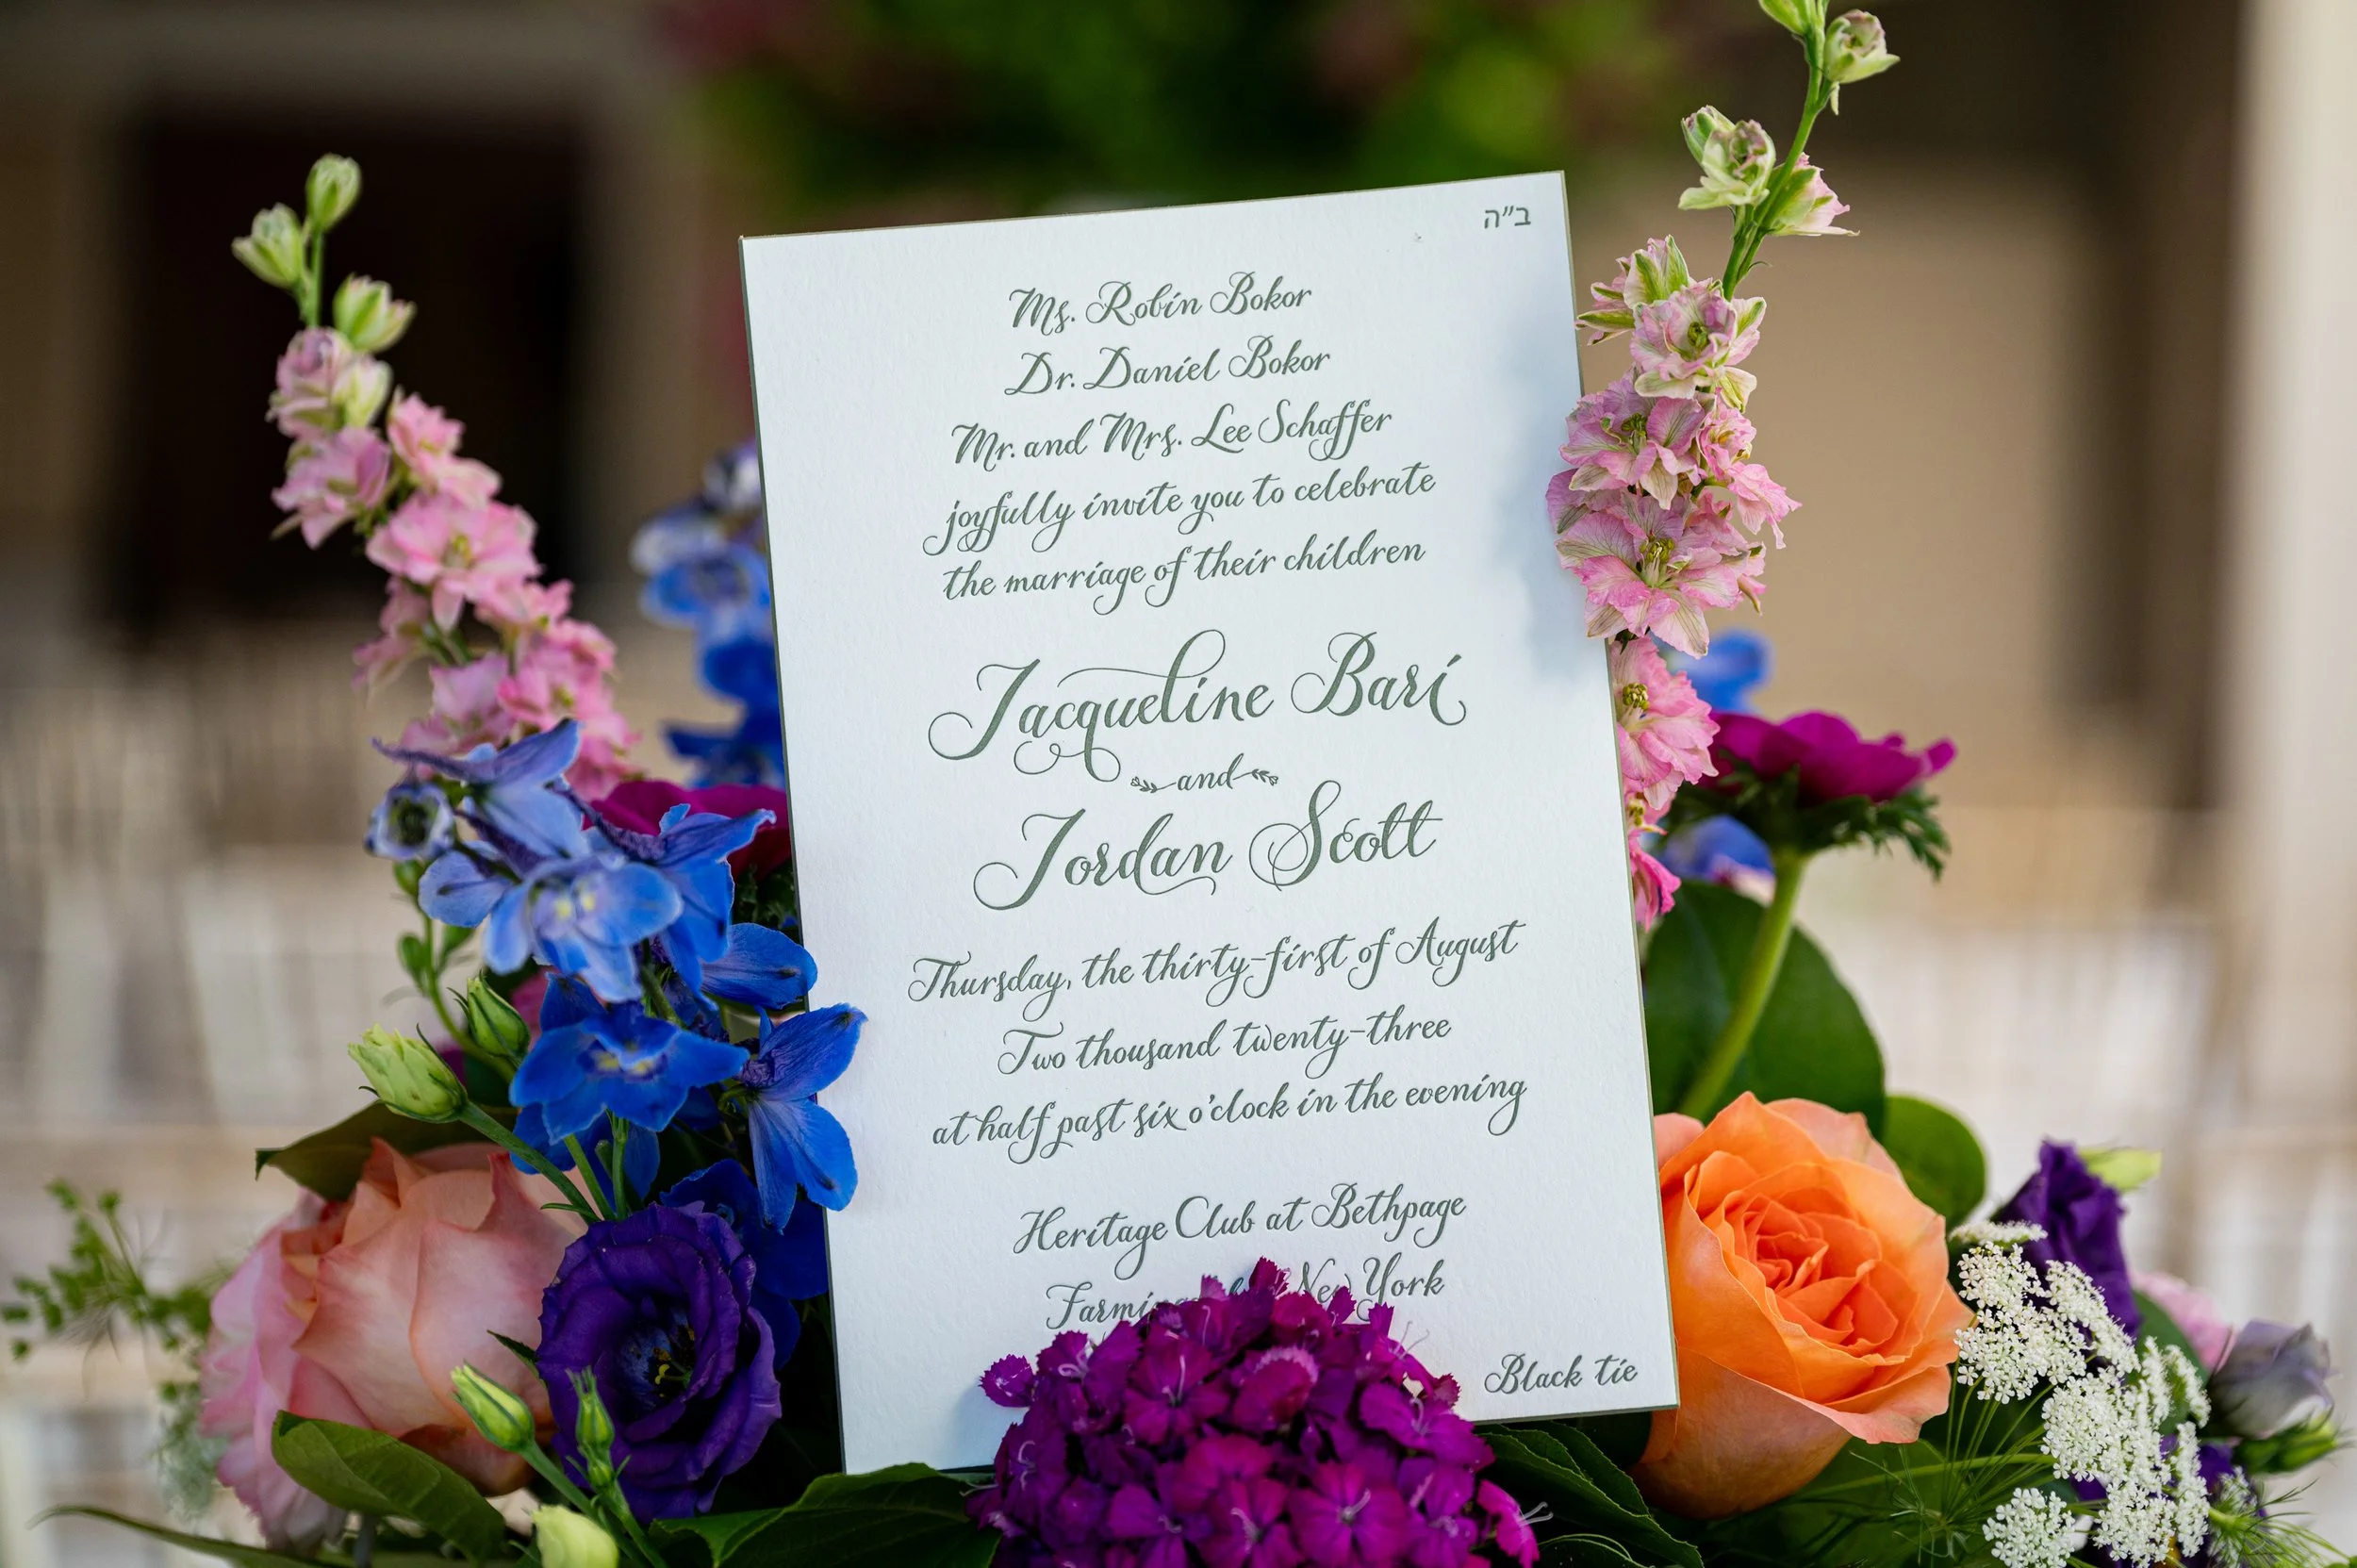 ב״ה
Ms. Robin Bokor
Dr. Daniel Bokor
Mr. and Mrs. Lee Schaffer
joyfully invite you to celebrate
the marriage of their children
Jacqueline Bari
and
Jordan Scott
Thursday, the thirty-first of August
Two thousand twenty-three
at half past six o'clock in the evening
Heritage Club at Bethpage
New York
Black tie